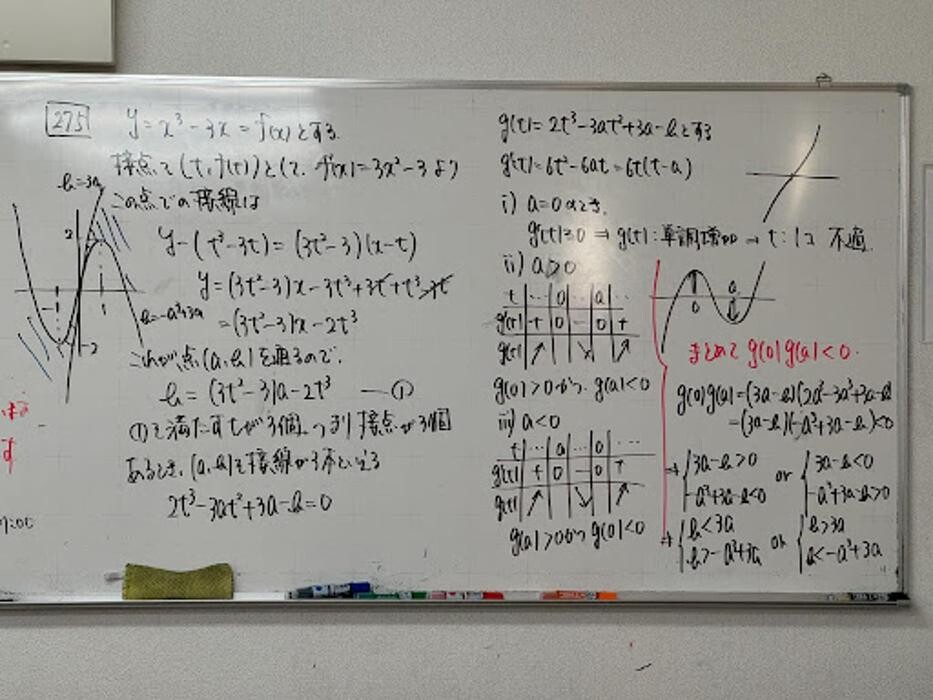 275
y=x³-3x=f(x)とする.
接点を(t,f(t))として. f'(x)=3x²-3より
この点での接線は
y-(t³-3t)=(3t²-3)(x-t)
y=(3t²-3)x-3t³+3t+t³-3t
=(3t²-3)x-2t³
これが点(a,b)を通るので.
b=(3t²-3)a-2t³ —①
①を満たすtが3個. つまり接点が3個
あるとき, (a,b)を接線が3本といえる
2t³-3at²+3a-b=0
b=3a
2
1
-1
-2
b=-a³+3a
す
g(t)=2t³-3at²+3a-bとする
g'(t)=6t²-6at=6t(t-a)
i) a=0のとき.
g'(t)≧0 ⇒ g(t):単調増加 → t:1コ 不適.
ii) a>0
t … 0 … a …
g'(t) + 0 - 0 +
g(t) ↗ ↘ ↗
g(0)>0かつ g(a)<0
iii) a<0
t … a … 0 …
g'(t) + 0 - 0 +
g(t) ↗ ↘ ↗
g(a)>0かつ g(0)<0
0 a
まとめて g(0)g(a)<0.
g(0)g(a)=(3a-b)(2a³-3a³+3a-b)
=(3a-b)(-a³+3a-b)<0
→ { 3a-b>0 or { 3a-b<0
-a³+3a-b<0 -a³+3a-b>0
→ { b<3a or { b>3a
b>-a³+3a b<-a³+3a